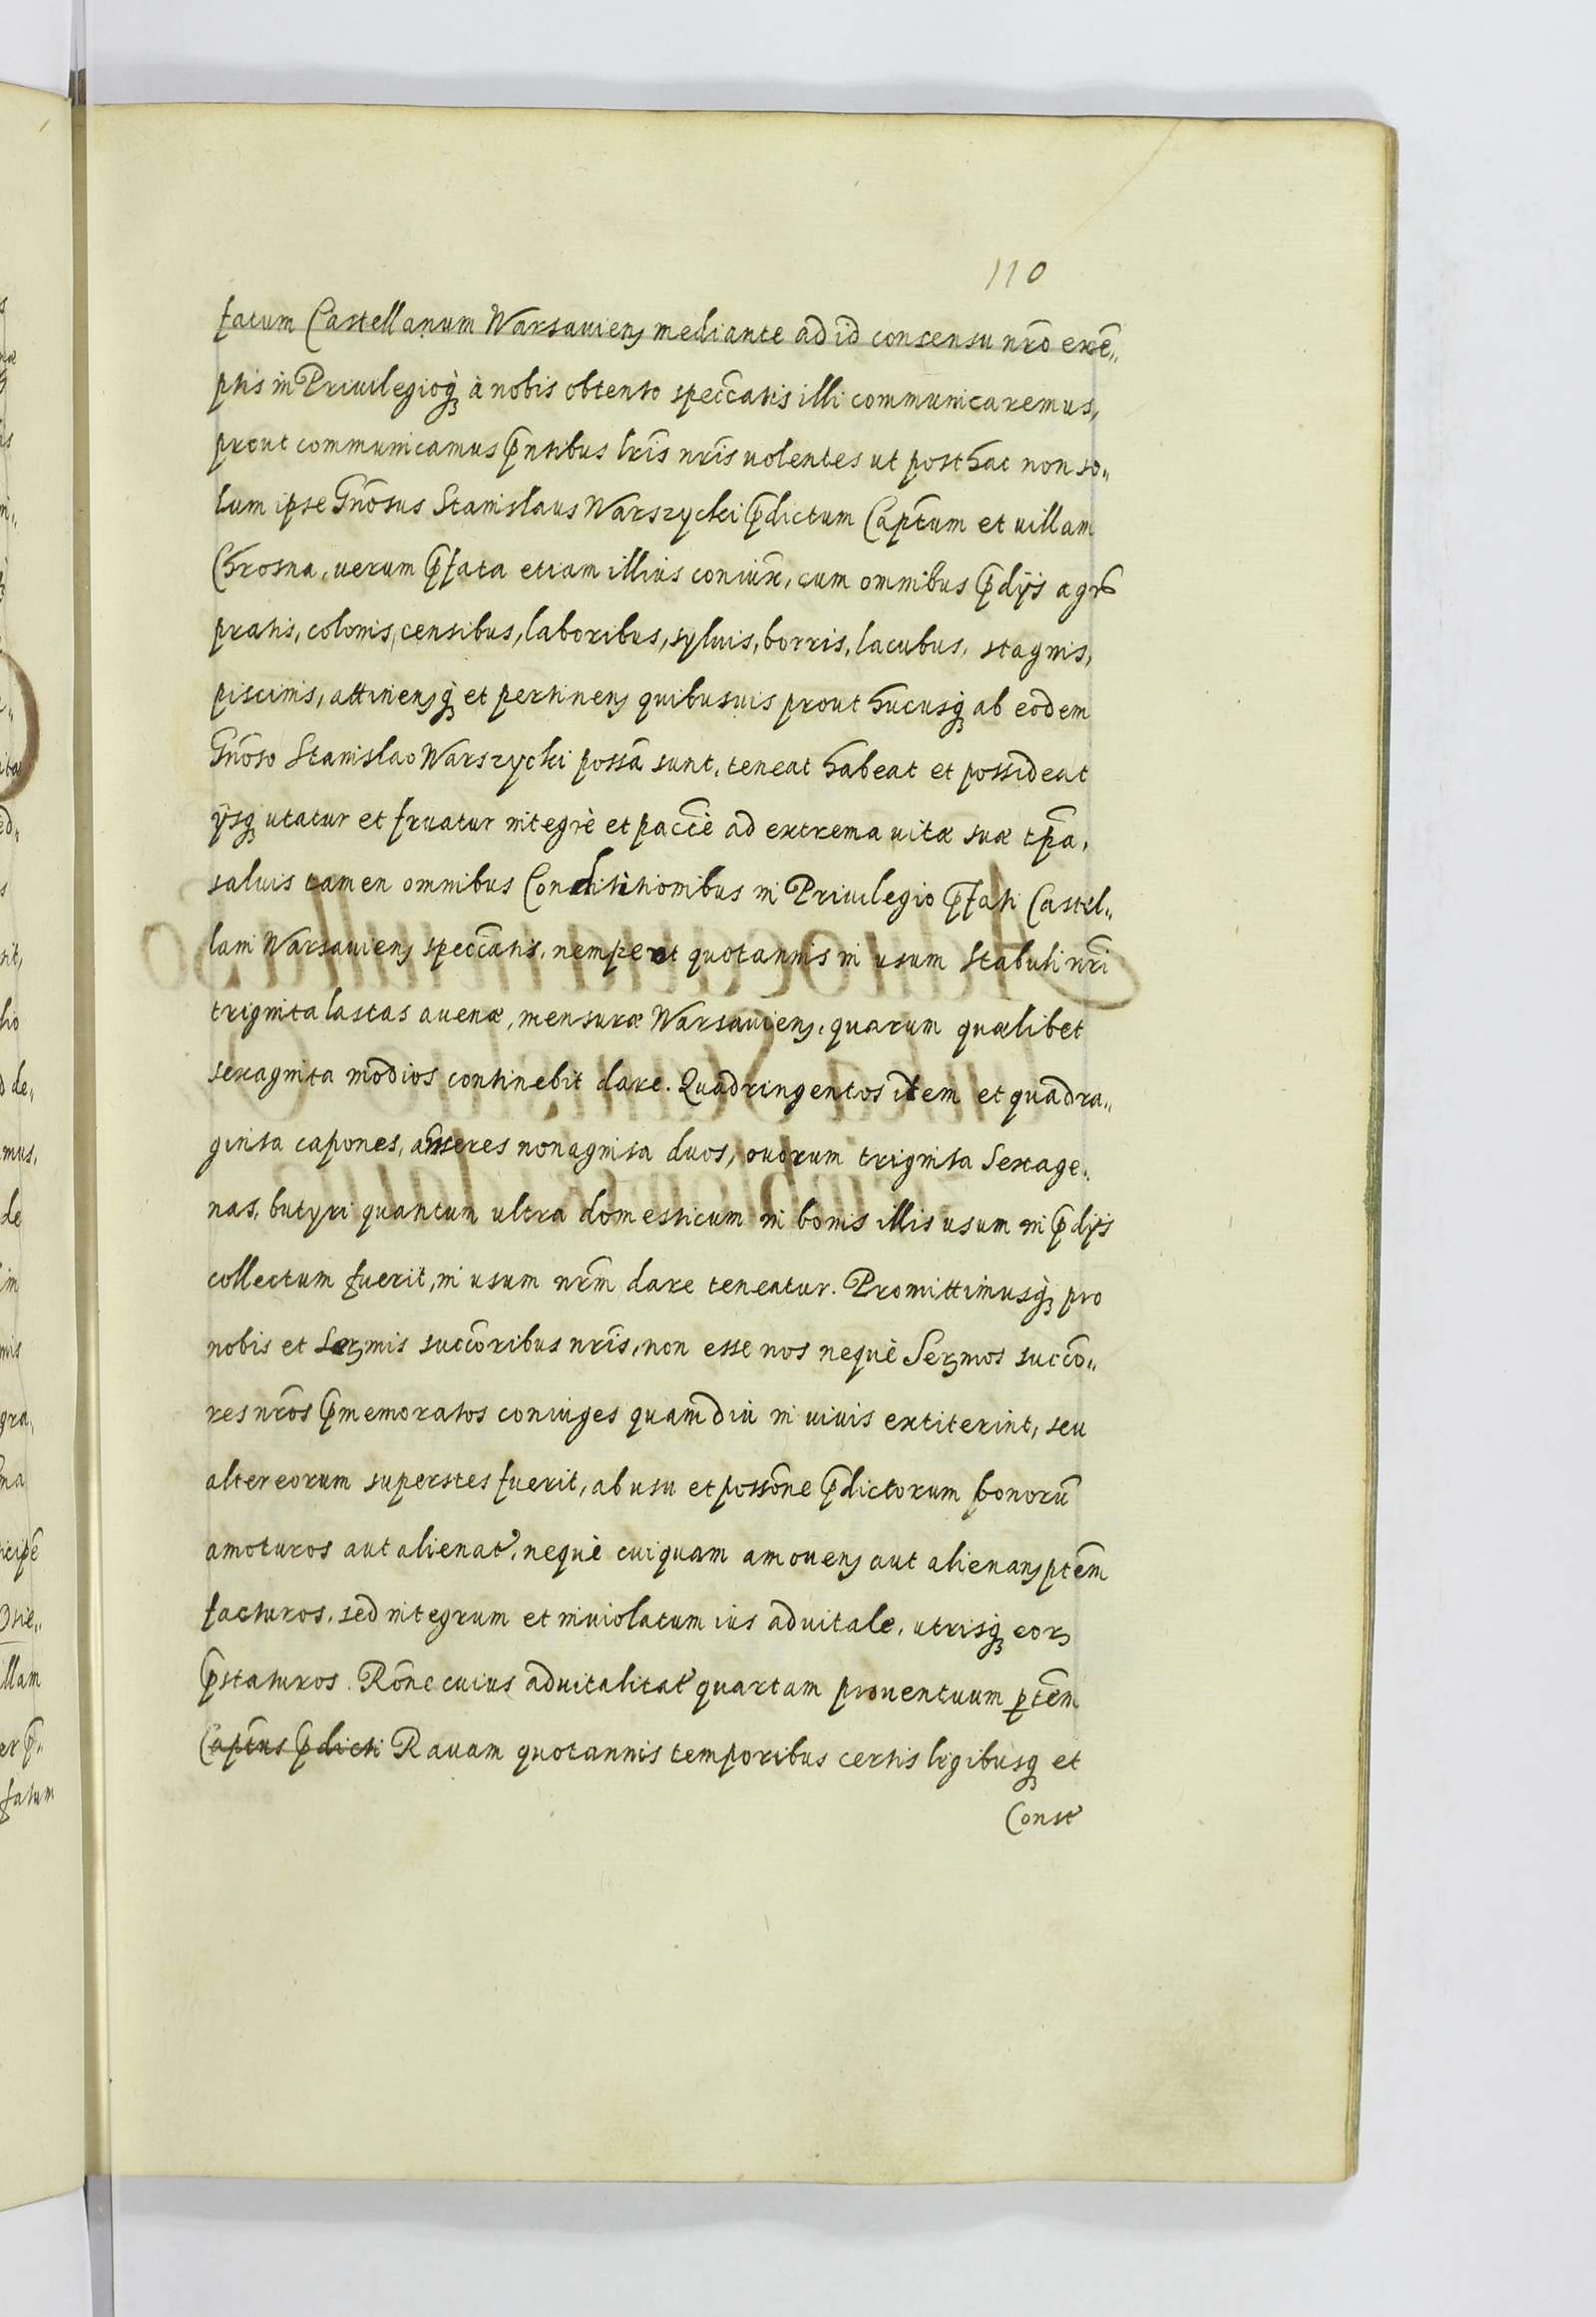 110
fatum Castellanum Warsauiens mediante ad id consensu nr̃o exẽ„
ptis in Priuilegioq́ꝫ à nobis obtento specc̃atis illi communicaremus,
prout communicamus p̃ntibus lr̃is nr̃is uolentes ut posthac non so„
lum ipse Gñosus Stanislaus Warszycki p̃dictum Cap̃tum et uillam
Chrosna, uerum p̃fata etiam illius coniũx, cum omnibus p̃dijs agris
pratis, colonis, censibus, laboribus, syluis, borris, lacubus, stagnis,
piscinis, attinensq́ꝫ et pertinens quibusuis prout hucusq́ꝫ ab eodem
Gñoso Stanislao Warszycki possã sunt, teneat habeat et possideat
ijsqꝫ utatur et fruatur integrè et pacc̃è ad extrema uitæ suæ tp̃a,
saluis tamen omnibus Conditionibus in Priuilegio p̃fati Castel„
lani Warsauiens specc̃atis, nempe ut quotannis in usum stabuli nr̃i
triginta lastas auenæ, mensuræ Warsauiens, quarum quælibet
sexaginta modios continebit dare. Quadringentos item et quadra„
ginta capones, anseres nonaginta duos, ouorum triginta sexage„
nas, butyri quantum ultra domesticum in bonis illis usum in p̃dijs
collectum fuerit, in usum nr̃m dare teneatur. Promittimusq́ꝫ pro
nobis et Serꝫmis succõribus nr̃is, non esse nos nequè Serꝫmos succõ„
res nr̃os p̃memoratos coniuges quamdiu in uiuis extiterint, seu
alter eorum superstes fuerit, ab usu et possõne p̃dictorum bonorũ
amoturos aut alienat, nequè cuiquam amouens aut alienans p̃tẽm
facturos, sed integrum et inuiolatum ius aduitale, utrisq́ꝫ eorꝫ
p̃staturos. Rõne cuius aduitalitat quartam prouentuum p̱tẽm
Cap̃tus p̃dicti Rauam quotannis temporibus certis legibusqꝫ et
Const